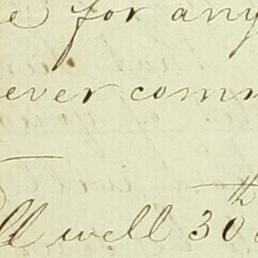 e for any
ever comm
ll well 30th